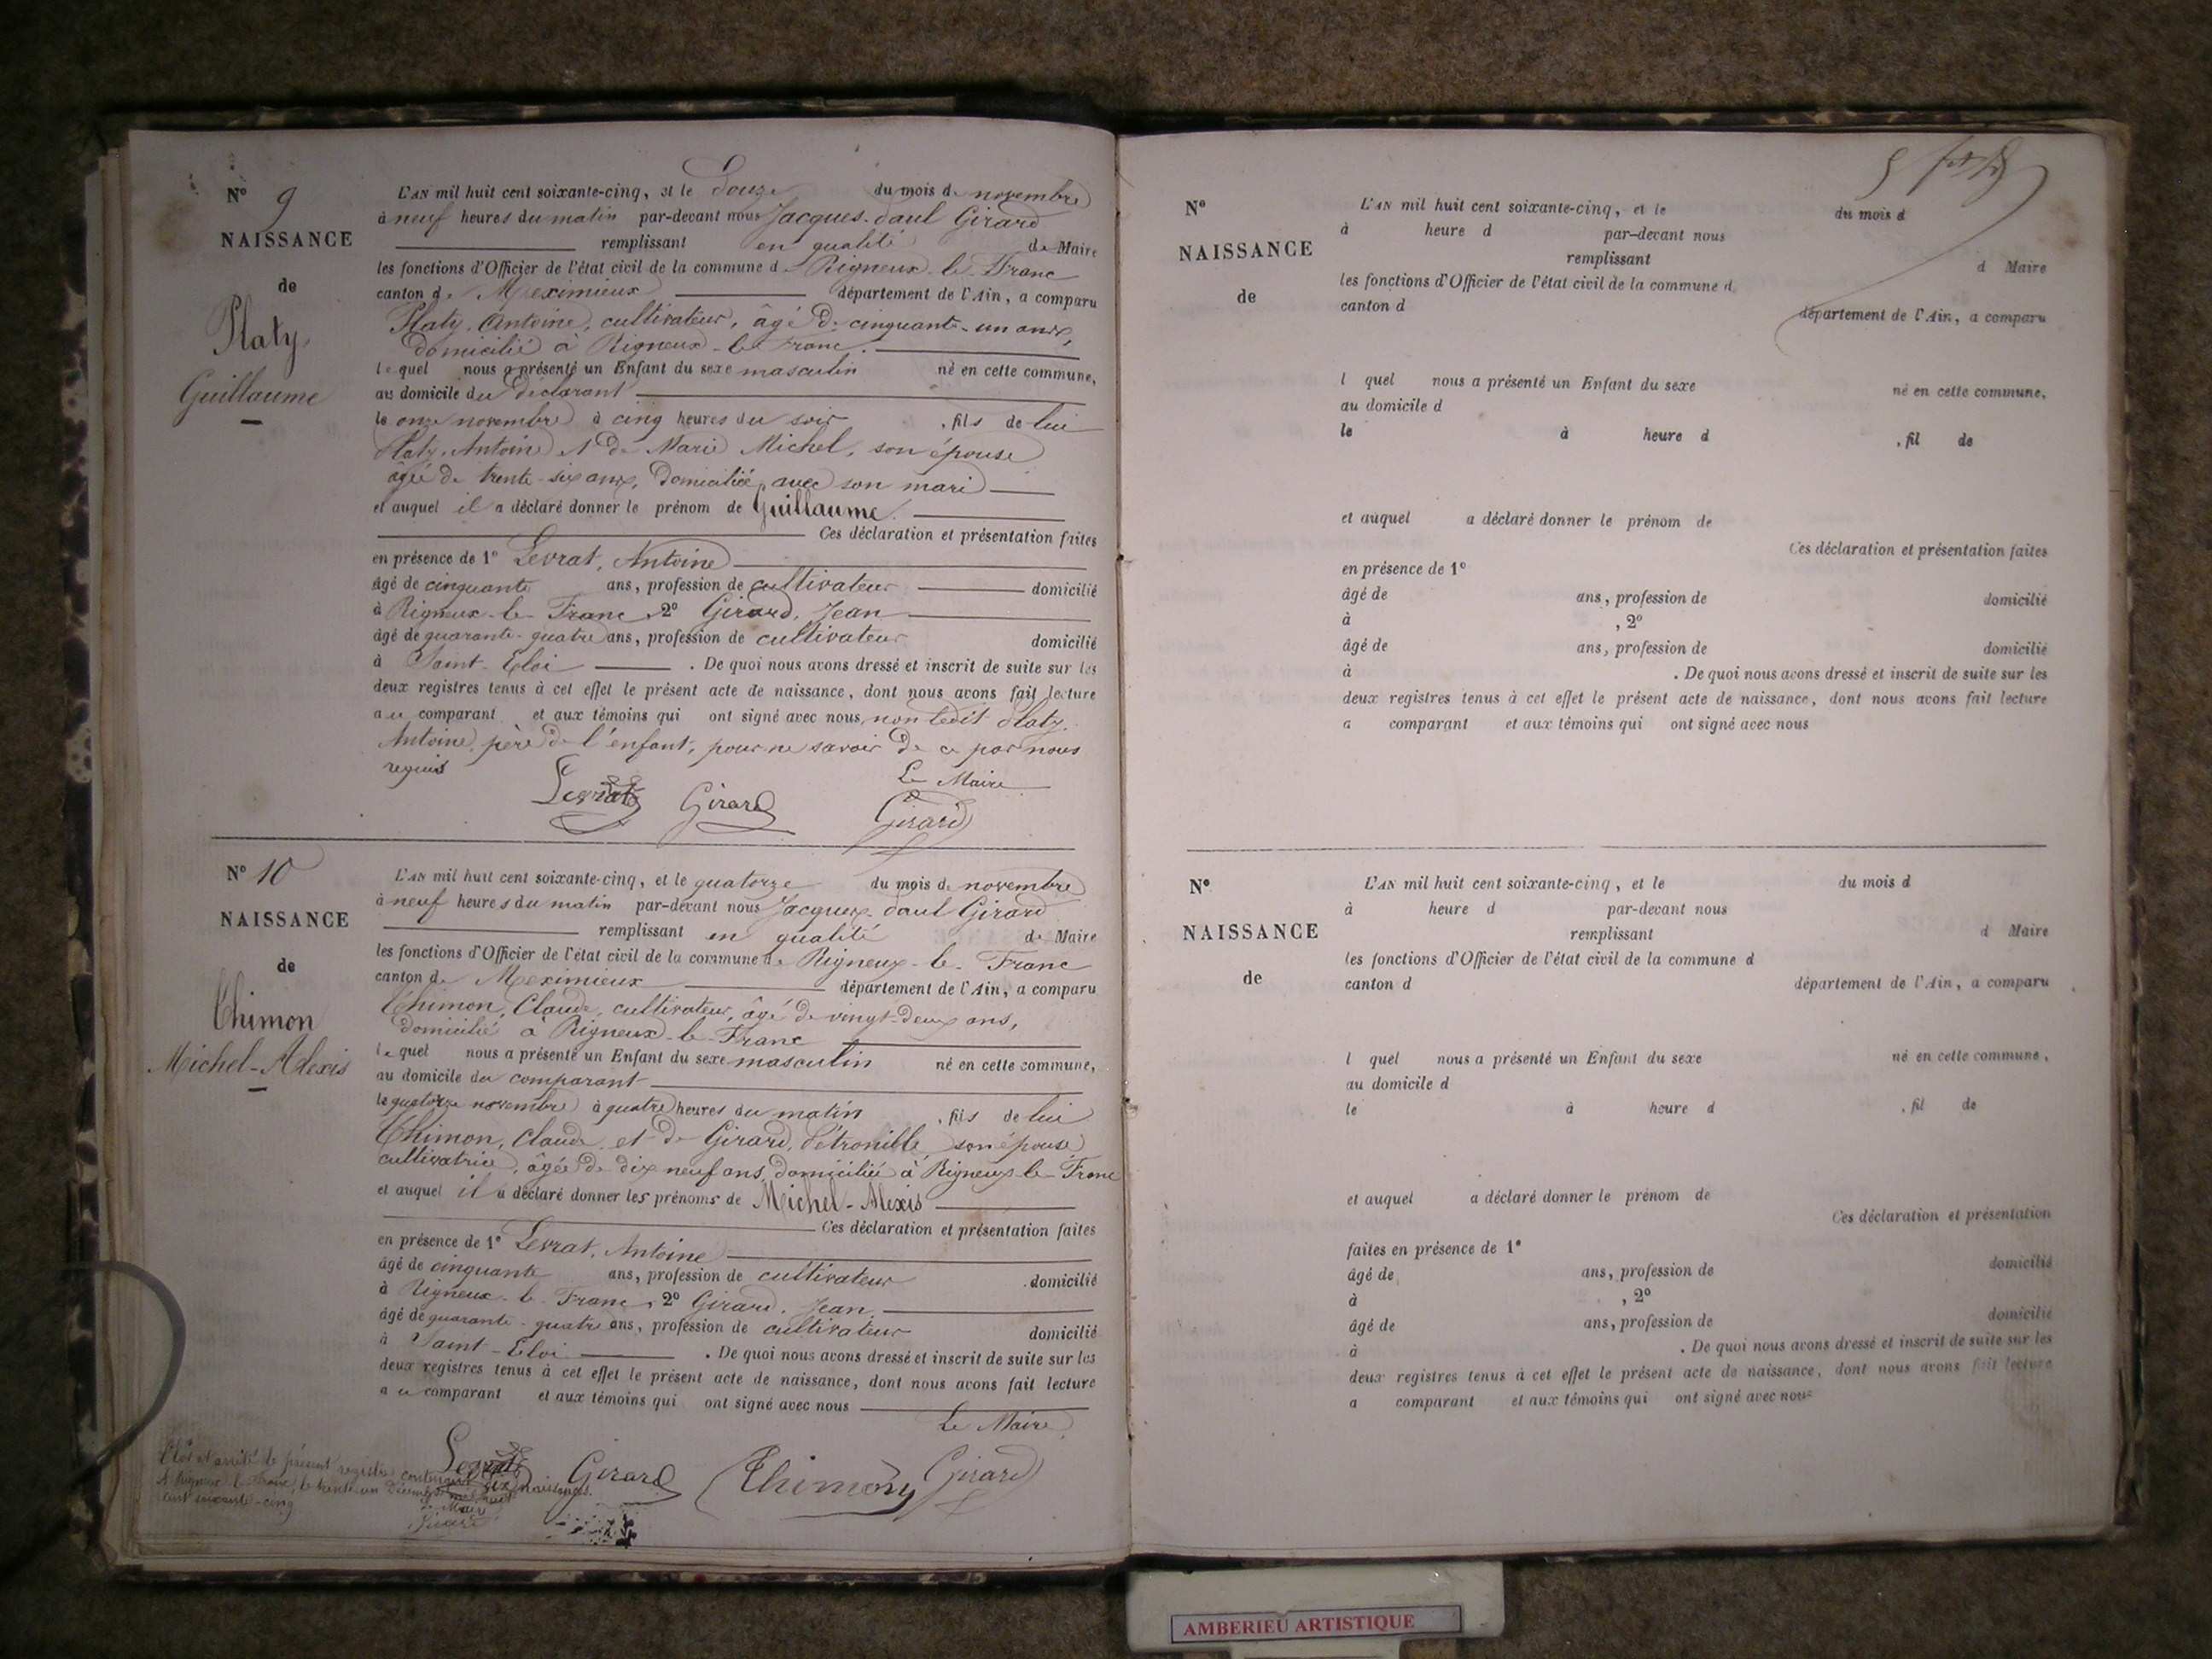 N° 9
NAISSANCE
de
Platy
Guillaume
L'AN mil huit cent soixante-cinq, et le Douze du mois de novembre
à neuf heures du matin par-devant nous Jacques-Paul Girard
remplissant en qualité de Maire
les fonctions d'Officier de l'état civil de la commune de Rigneux-le-Franc
canton de Meximieux département de l'Ain, a comparu
Platy, Antoine, cultivateur, âgé de cinquante-un ans,
domicilié à Rigneux-le-Franc.
lequel nous a présenté un Enfant du sexe masculin né en cette commune,
au domicile du déclarant
le onze novembre à cinq heures du soir, fils de lui
Platy, Antoine et de Marie Michel, son épouse
âgée de trente-six ans, domiciliée avec son mari
et auquel il a déclaré donner le prénom de Guillaume.
Ces déclaration et présentation faites
en présence de 1° Levrat, Antoine
âgé de cinquante ans, profession de cultivateur domicilié
à Rigneux-le-Franc, 2° Girard, Jean
âgé de quarante-quatre ans, profession de cultivateur domicilié
à Saint-Eloi. De quoi nous avons dressé et inscrit de suite sur les
deux registres tenus à cet effet le présent acte de naissance, dont nous avons fait lecture
au comparant et aux témoins qui ont signé avec nous, non ledit Platy,
Antoine, père de l'enfant, pour ne savoir de ce par nous
requis
Le Maire
Levrat Girard Girard
N° 10
NAISSANCE
de
Thimon
Michel-Alexis
L'AN mil huit cent soixante-cinq, et le quatorze du mois de novembre
à neuf heures du matin par-devant nous Jacques-Paul Girard
remplissant en qualité de Maire
les fonctions d'Officier de l'état civil de la commune de Rigneux-le-Franc
canton de Meximieux département de l'Ain, a comparu
Thimon, Claude, cultivateur, âgé de vingt-deux ans,
domicilié à Rigneux-le-Franc
lequel nous a présenté un Enfant du sexe masculin né en cette commune,
au domicile du comparant
le quatorze novembre à quatre heures du matin, fils de lui
Thimon, Claude et de Girard, Pétronille, son épouse
cultivatrice, âgée de dix neuf ans, domiciliée à Rigneux-le-Franc
et auquel il a déclaré donner les prénoms de Michel-Alexis
Ces déclaration et présentation faites
en présence de 1° Levrat, Antoine
âgé de cinquante ans, profession de cultivateur domicilié
à Rigneux-le-Franc, 2° Girard, Jean
âgé de quarante-quatre ans, profession de cultivateur domicilié
à Saint-Eloi. De quoi nous avons dressé et inscrit de suite sur les
deux registres tenus à cet effet le présent acte de naissance, dont nous avons fait lecture
au comparant et aux témoins qui ont signé avec nous
Le Maire
Levrat Girard Thimon Girard
Clos et arrêté le présent registre contenant dix naissances.
A Rigneux-le-Franc, le trente-un Décembre mil huit
cent soixante-cinq
Le Maire
Girard
N°
NAISSANCE
de
L'AN mil huit cent soixante-cinq, et le du mois d
à heure d par-devant nous
remplissant d Maire
les fonctions d'Officier de l'état civil de la commune d
canton d département de l'Ain, a comparu
l quel nous a présenté un Enfant du sexe né en cette commune,
au domicile d
le à heure d , fil de
et auquel a déclaré donner le prénom de
Ces déclaration et présentation faites
en présence de 1°
âgé de ans, profession de domicilié
à , 2°
âgé de ans, profession de domicilié
à . De quoi nous avons dressé et inscrit de suite sur les
deux registres tenus à cet effet le présent acte de naissance, dont nous avons fait lecture
a comparant et aux témoins qui ont signé avec nous
N°
NAISSANCE
de
L'AN mil huit cent soixante-cinq, et le du mois d
à heure d par-devant nous
remplissant d Maire
les fonctions d'Officier de l'état civil de la commune d
canton d département de l'Ain, a comparu
l quel nous a présenté un Enfant du sexe né en cette commune,
au domicile d
le à heure d , fil de
et auquel a déclaré donner le prénom de
Ces déclaration et présentation
faites en présence de 1°
âgé de ans, profession de domicilié
à , 2°
âgé de ans, profession de domicilié
à . De quoi nous avons dressé et inscrit de suite sur les
deux registres tenus à cet effet le présent acte de naissance, dont nous avons fait lecture
a comparant et aux témoins qui ont signé avec nous
AMBERIEU ARTISTIQUE